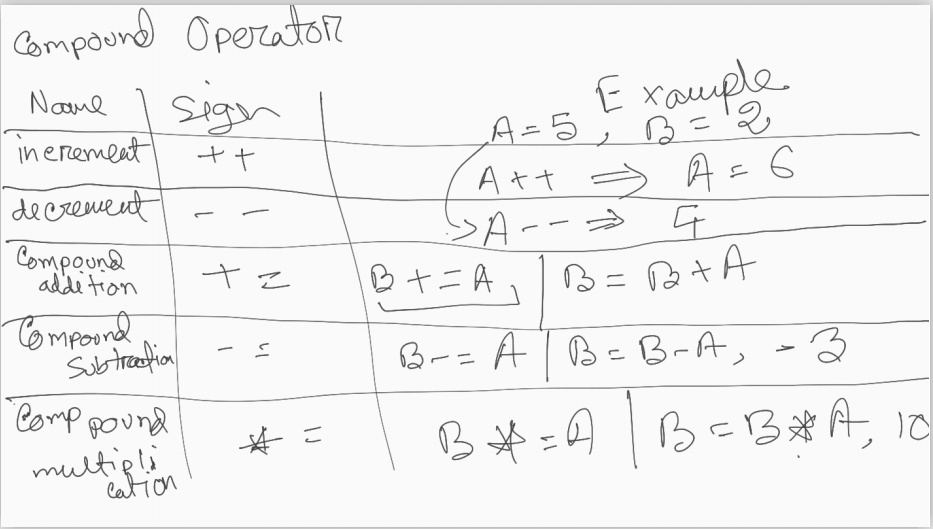 Compound Operator
Name Sign Example
A = 5, B = 2
increment ++ A++ ⇒ A = 6
decrement -- A-- ⇒ 4
Compound addition += B+=A, B = B+A
Compound Subtraction -= B-=A B = B-A, -3
Comppound multiplication *= B*=A B = B*A, 10